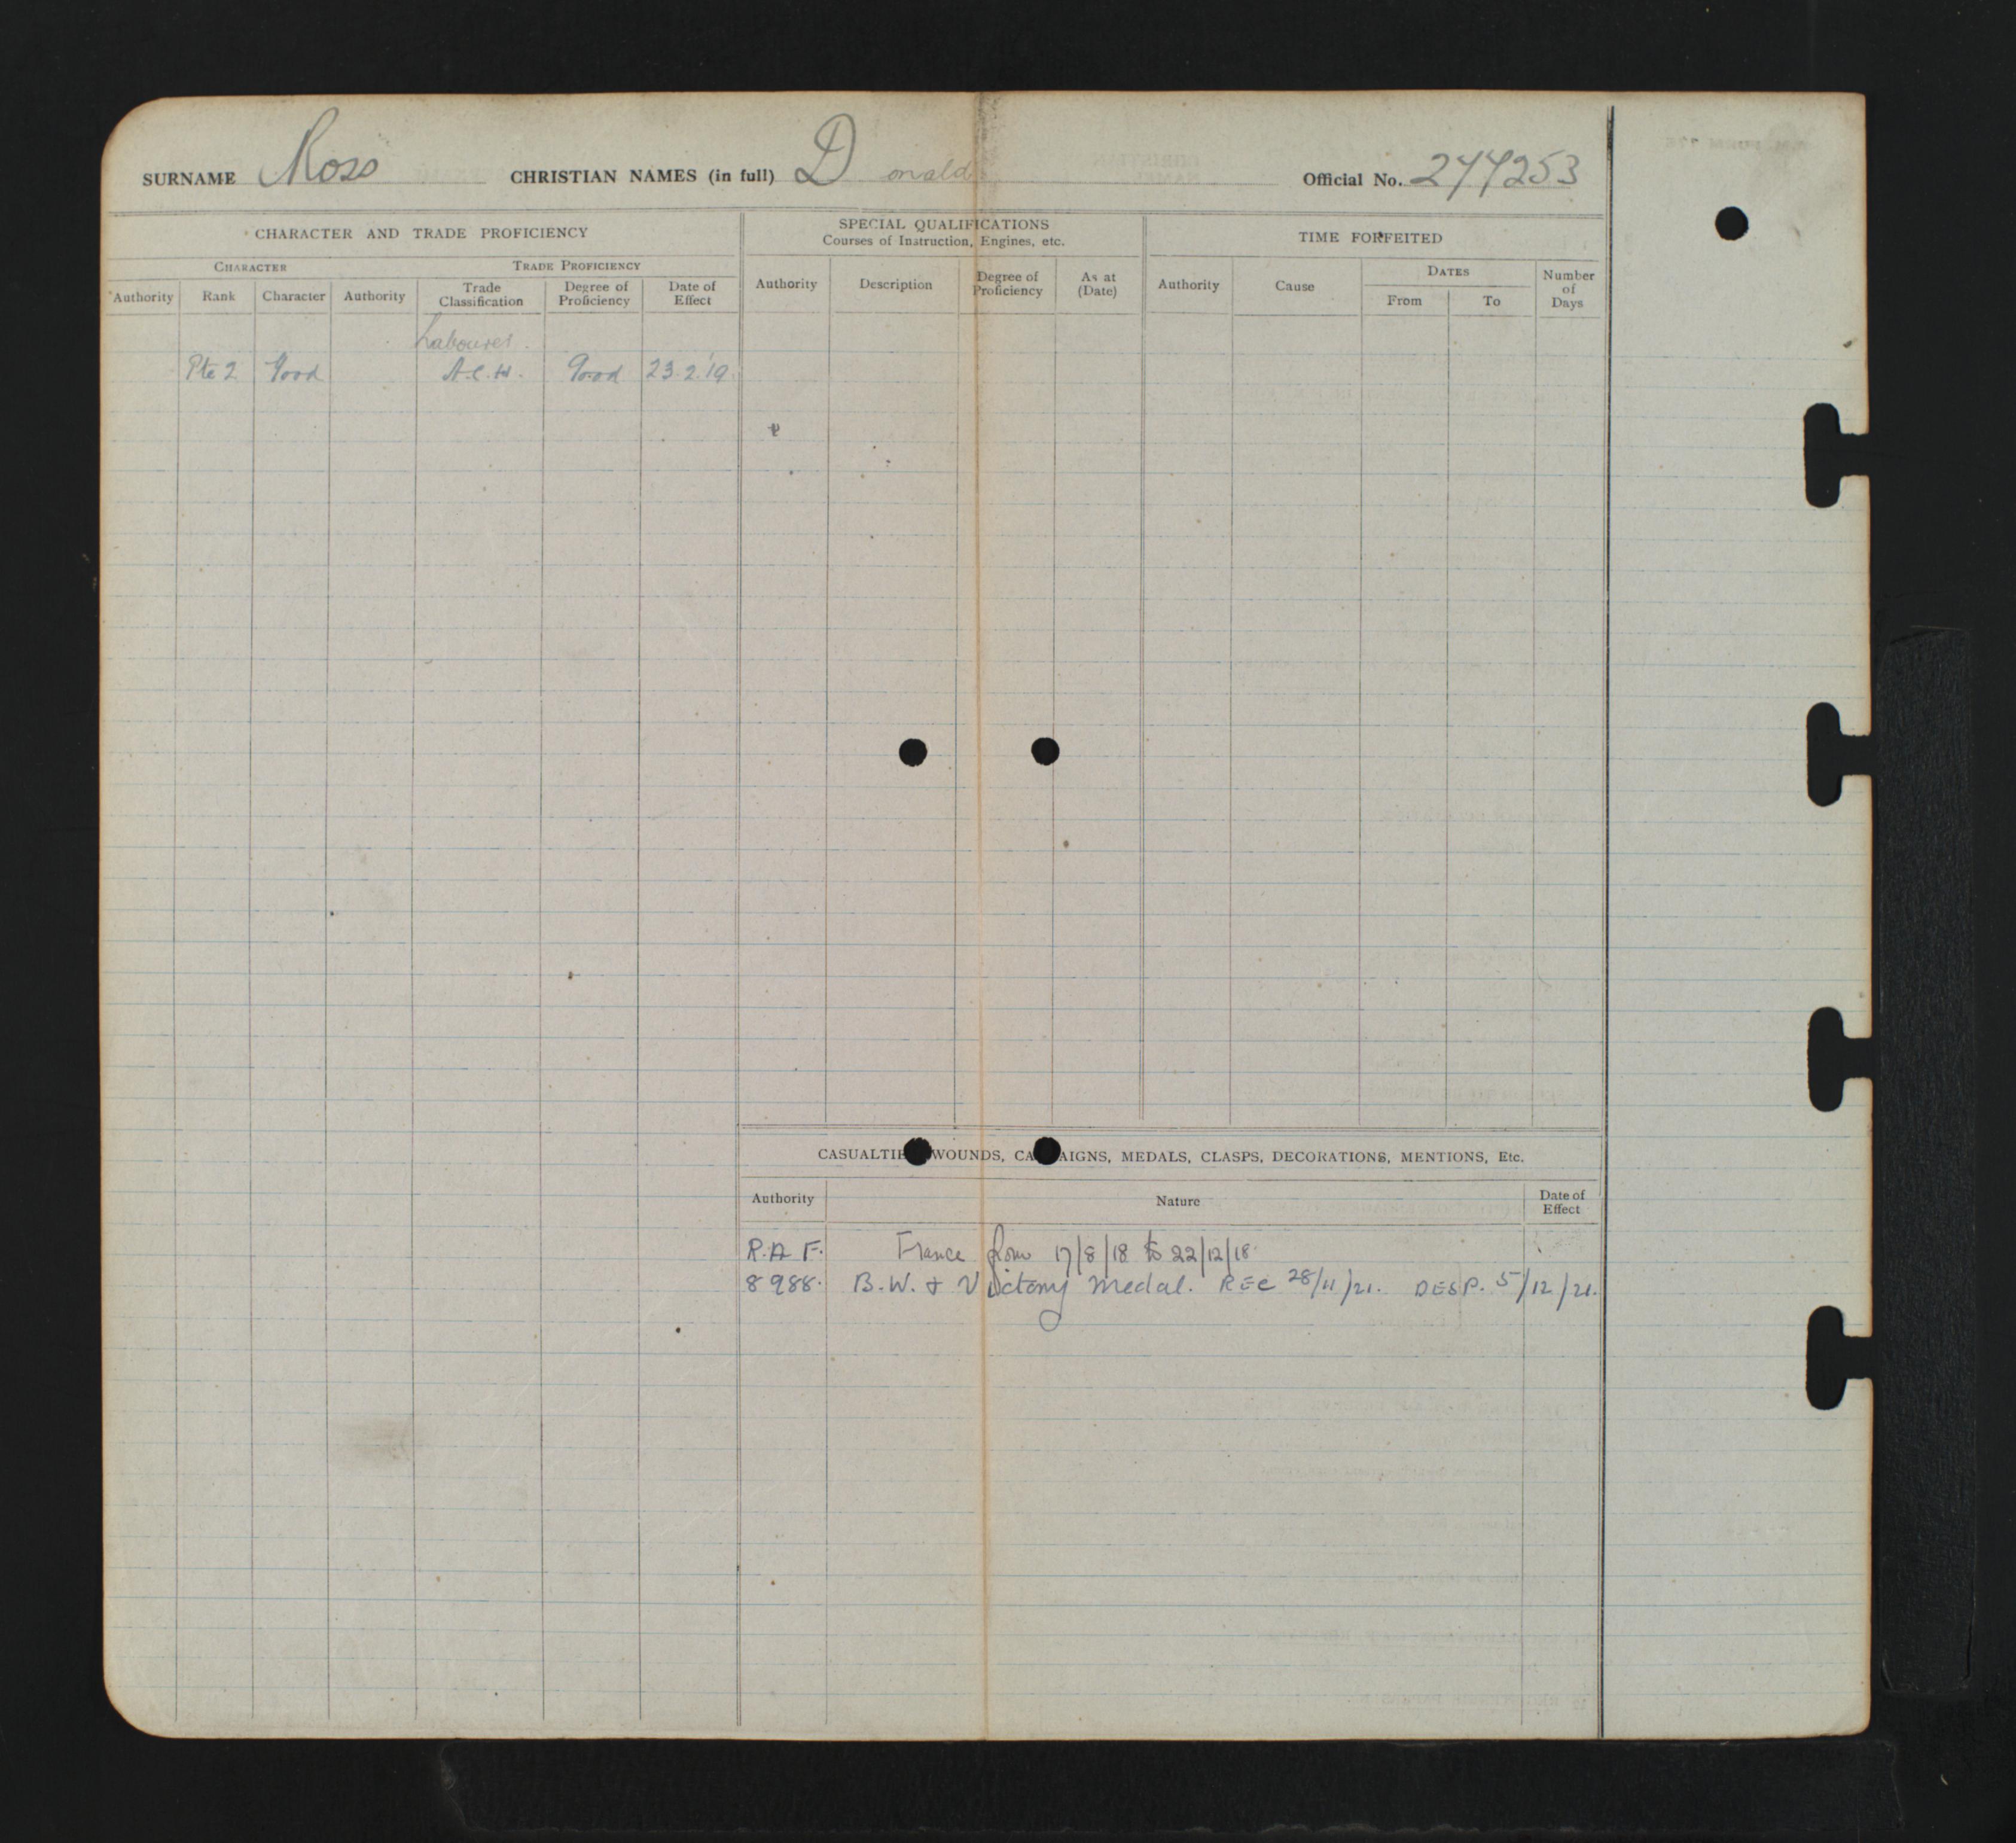 SURNAME Ross CHRISTIAN NAMES (in full) Donald Official No. 244253
CHARACTER AND TRADE PROFICIENCY
SPECIAL QUALIFICATIONS
Courses of Instruction, Engines, etc.
TIME FORFEITED
CHARACTER TRADE PROFICIENCY
Authority Rank Character Authority Trade Classification Degree of Proficiency Date of Effect
Authority Description Degree of Proficiency As at (Date)
Authority Cause DATES From To Number of Days
Labourer.
Pte 2 Good A.C.H. Good 23.2.19.
CASUALTIE WOUNDS, CA AIGNS, MEDALS, CLASPS, DECORATIONS, MENTIONS, Etc.
Authority Nature Date of Effect
R.A.F. France from 17/8/18 to 22/12/18.
8988. B.W. & Victory Medal. REC 28/11/21. DESP. 5/12/21.